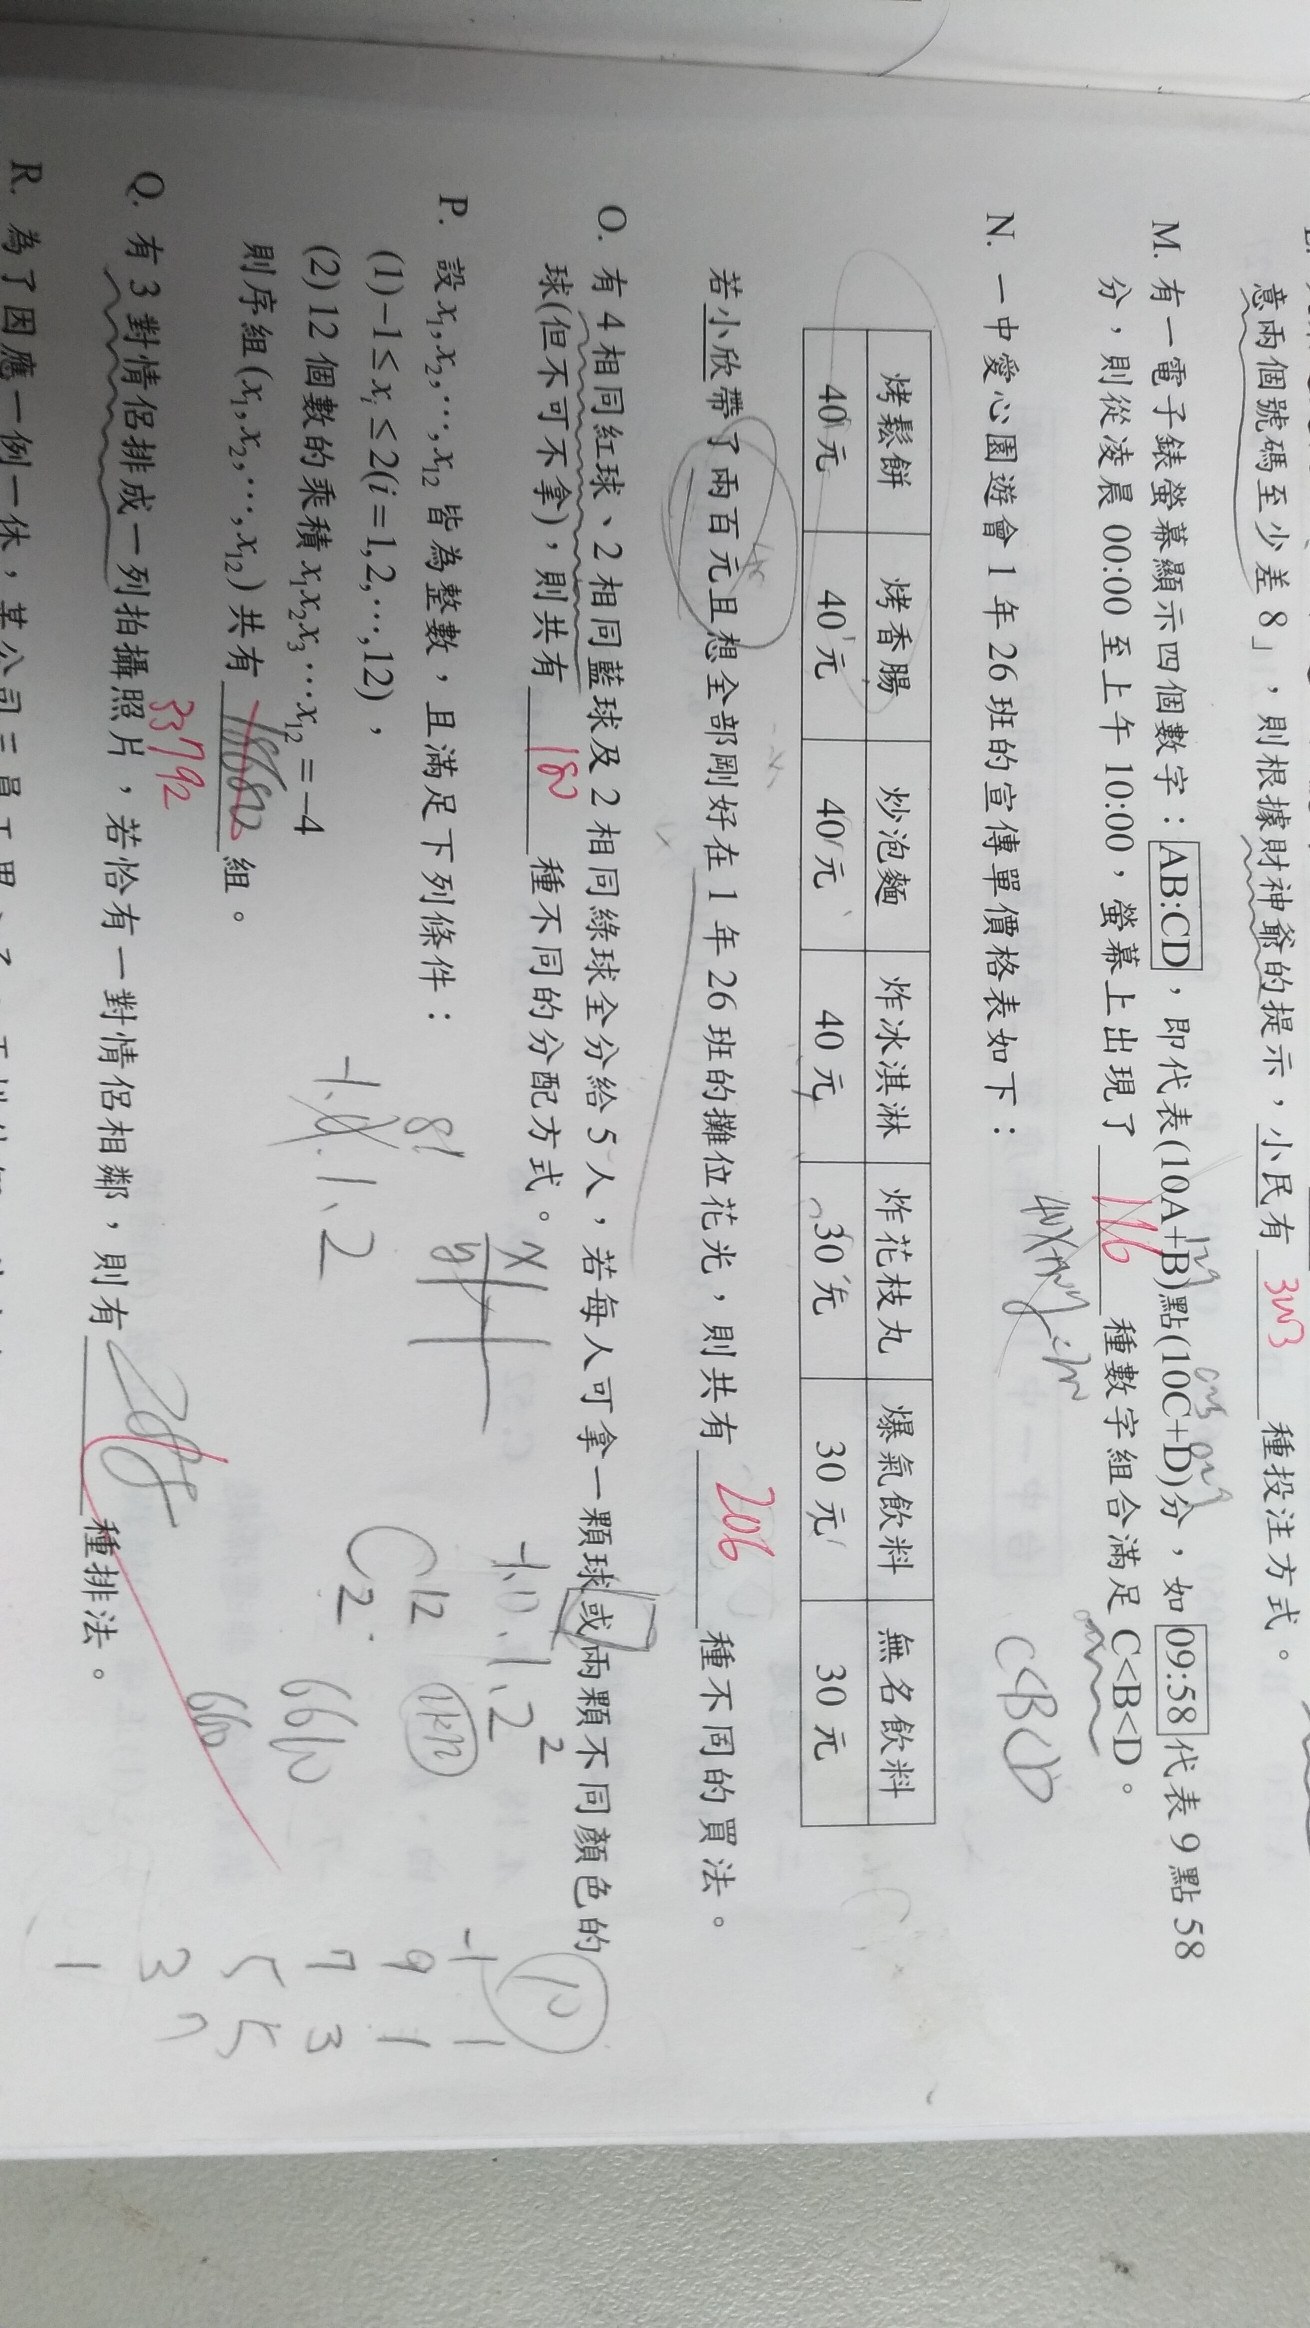 意兩個號碼至少差8」，則根據財神爺的提示，小民有 3003 種投注方式。
M. 有一電子錶螢幕顯示四個數字：AB:CD，即代表(10A+B)點(10C+D)分，如 09:58 代表 9 點 58
分，則從凌晨 00:00 至上午 10:00，螢幕上出現了 116 種數字組合滿足 C<B<D。
C<B<D
N. 一中愛心園遊會 1 年 26 班的宣傳單價格表如下：
烤鬆餅 烤香腸 炒泡麵 炸冰淇淋 炸花枝丸 爆氣飲料 無名飲料
40 元 40 元 40 元 40 元 30 元 30 元 30 元
若小欣帶了兩百元且想全部剛好在 1 年 26 班的攤位花光，則共有 206 種不同的買法。
O. 有 4 相同紅球、2 相同藍球及 2 相同綠球全分給 5 人，若每人可拿一顆球或兩顆不同顏色的
球(但不可不拿)，則共有 180 種不同的分配方式。
P. 設 x₁,x₂,⋯,x₁₂ 皆為整數，且滿足下列條件：
(1)−1≤xᵢ≤2(i=1,2,⋯,12)，
(2)12 個數的乘積 x₁x₂x₃⋯x₁₂=−4
則序組(x₁,x₂,⋯,x₁₂)共有 組。
33792
-1, 0, 1, 2
-1, 0, 1, 2
C 12 2
Q. 有 3 對情侶排成一列拍攝照片，若恰有一對情侶相鄰，則有 288 種排法。
-1 1
9 1
7 3
5 5
3 7
1
R. 為了因應一例一休，某公司三員工甲、乙